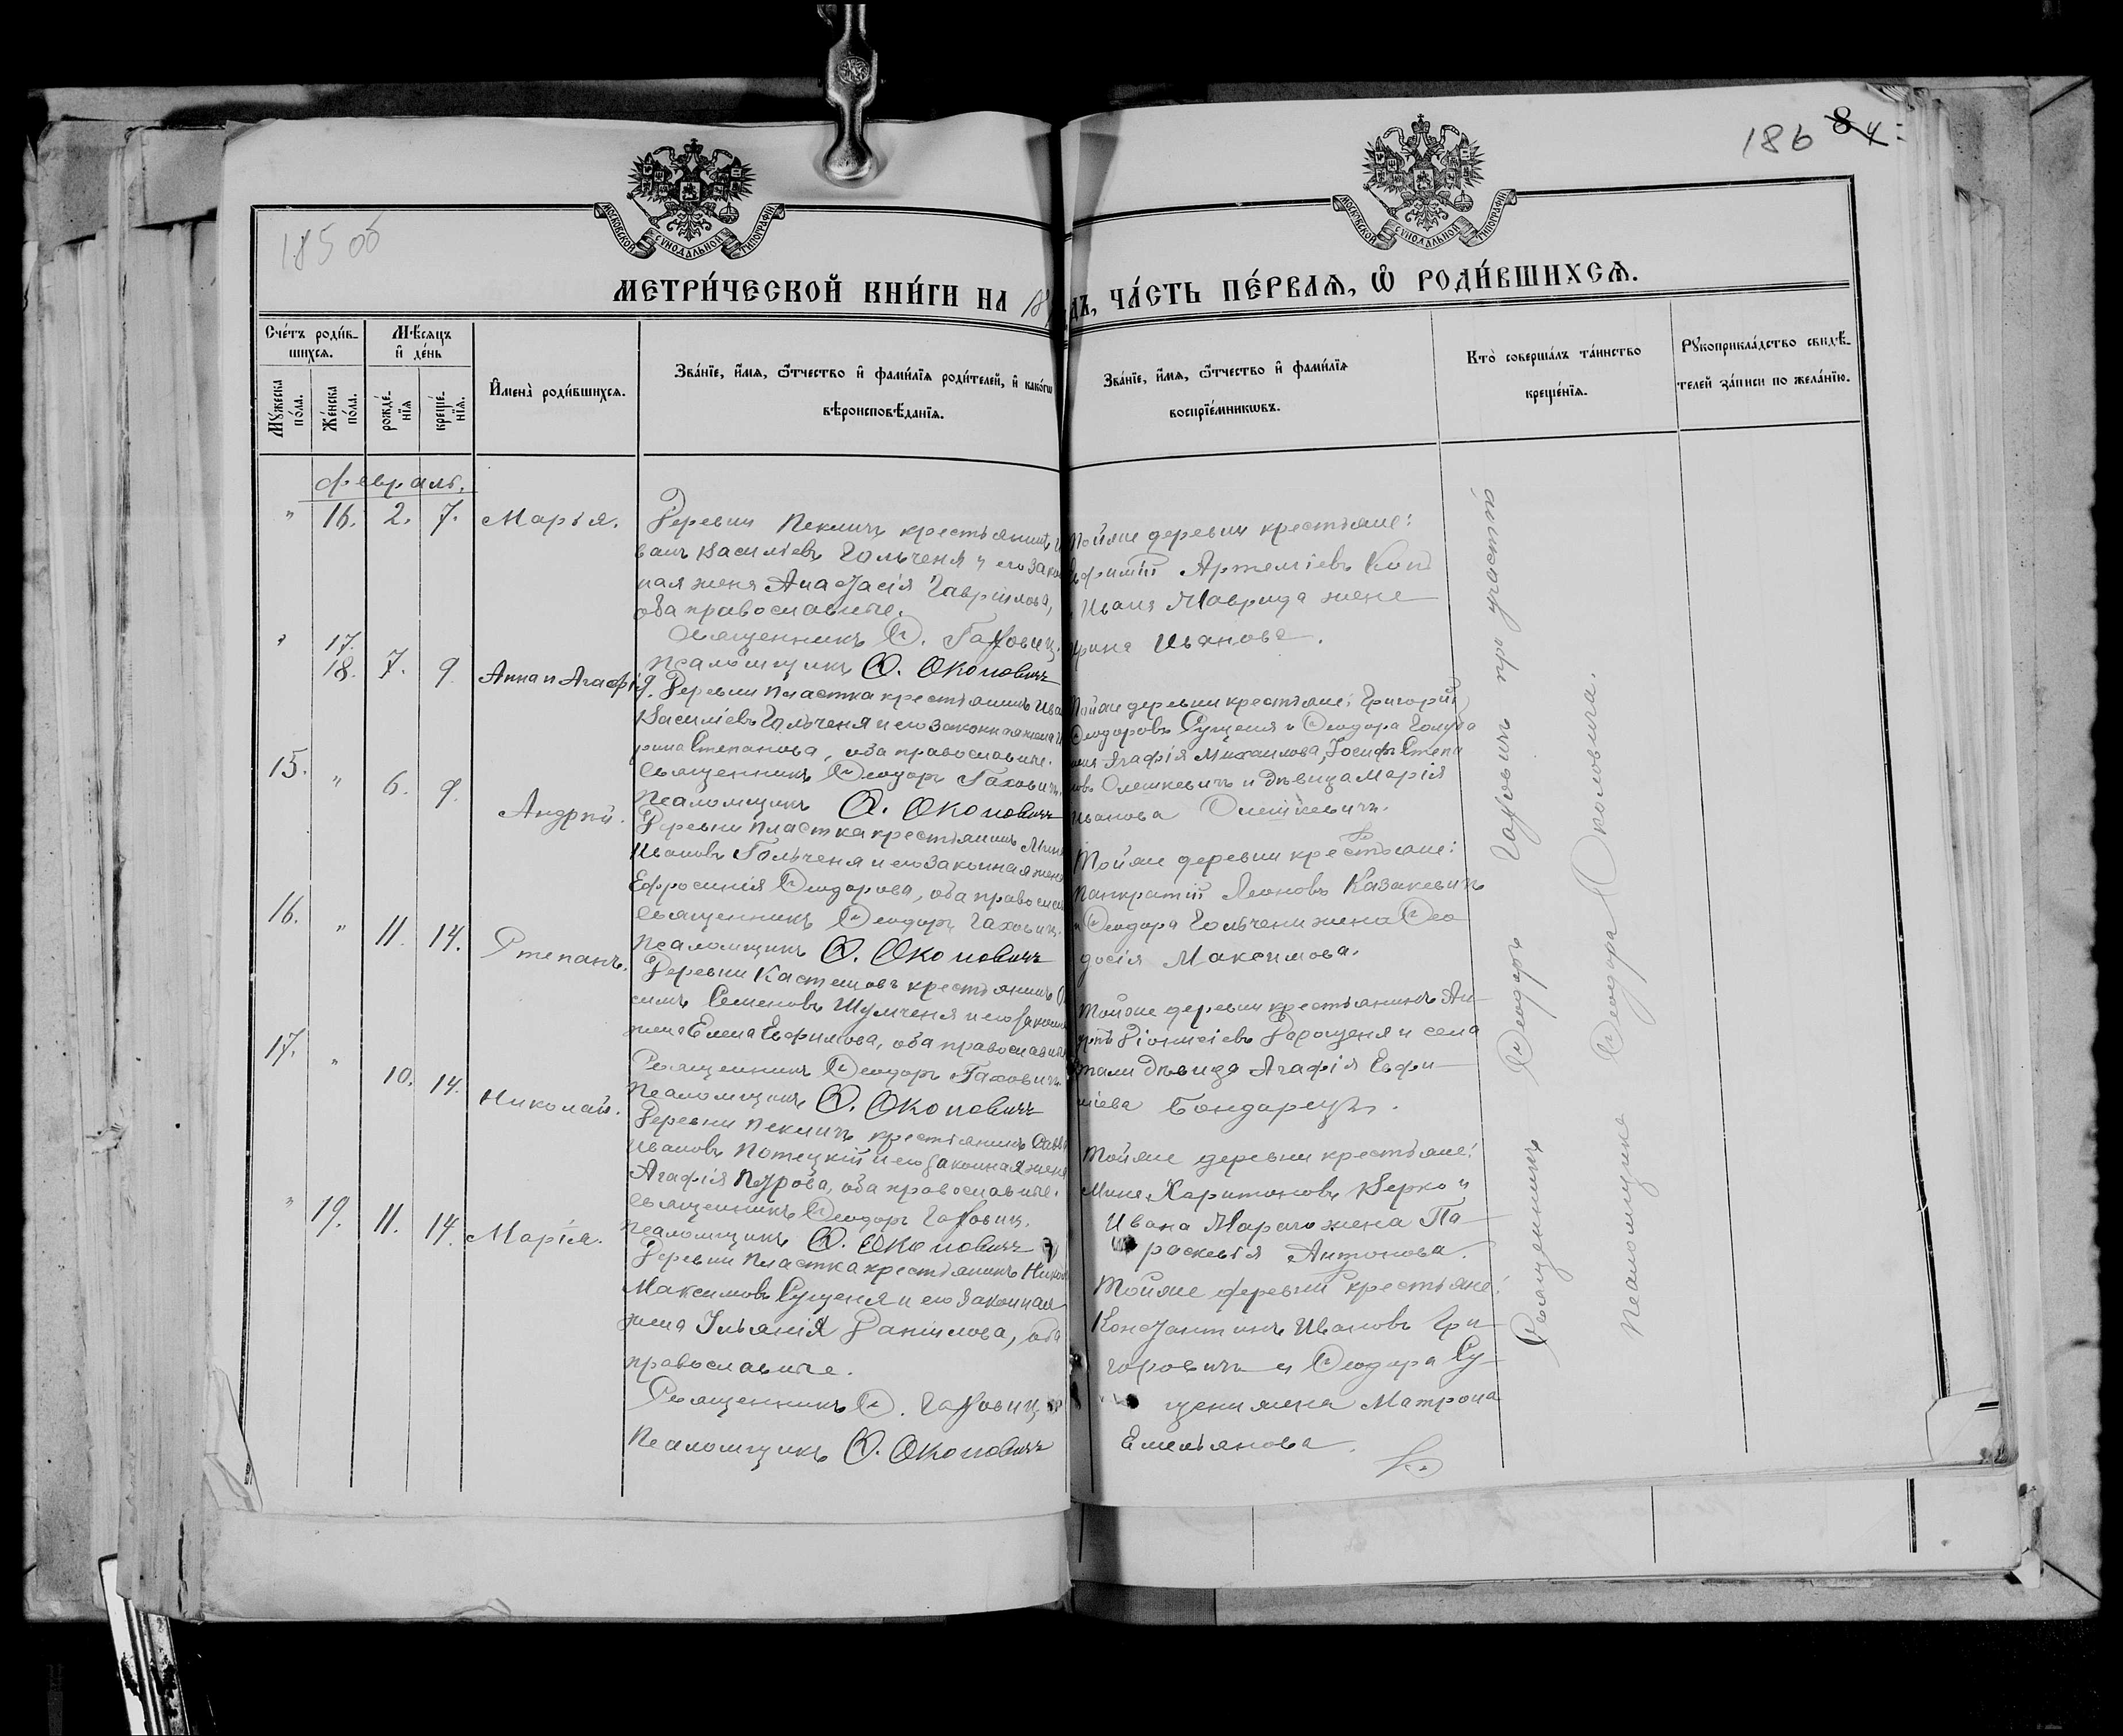 186 84
185 об
МОСКОВСКОЙ СѴНОДАЛЬНОЙ ТИПОГРАФІИ
МОСКОВСКОЙ СѴНОДАЛЬНОЙ ТИПОГРАФІИ
МЕТРИ́ЧЕСКОЙ КНИ́ГИ НА 18
ДЪ, ЧА́СТЬ ПЕ́РВАѦ, Ѡ҆ РОДИ́ВШИХСѦ.
Сче́тъ роди́в-
шихсѧ.
Мꙋ́жеска по́ла.
Же́нска по́ла.
Мѣ́сѧцъ и҆ де́нь
рожде́-нїѧ
креще́-нїѧ.
И҆мена̀ роди́вшихсѧ.
Зва́нїе, и҆́мѧ, ѻ҆́тчество и҆ фами́лїѧ роди́телей, и҆ како́гѡ
вѣроисповѣ́данїѧ.
Зва́нїе, и҆́мѧ, ѻ҆́тчество и҆ фами́лїѧ
воспрїе́мникѡвъ.
Кто̀ соверша́лъ та́инство
креще́нїѧ.
Рꙋкоприкла́дство свидѣ́-
телей за́писи по жела́нїю.
Февраль.
" 16. 2. 7. Марія.
Деревни Пекличъ крестьянинъ И
ванъ Василіевъ Гольченя и его закон
ная жена Анастасія Гаврiилова,
оба православные.
Священникъ Ѳ. Гахович.
Псаломщикъ Ѳ. Околовичъ
Тойже деревни крестьяне:
Евфимій Артеміевъ
Ивана Маврида жена
Ирина Иванова.
" 17. 18. 7. 9. Анна и Агафія.
Деревни Пластка крестьянинъ Ива
Василіевъ Гольченя и его законная жена И
рина Степанова, оба православные.
Священникъ Ѳеодоръ Гаховичъ.
Псаломщикъ Ѳ. Околовичъ
Тойже деревни крестьяне: Григорій
Ѳеодоровъ Сущеня и Ѳеодора
Агафія Михаилова, Іосифъ Степа
новъ Олешкевичъ и дѣвица Марія
Иванова Олешкевичъ.
15. " 6. 9. Андрей.
Деревни Пластка крестьянинъ Мина
Ивановъ Гольченя и его законная жена
Ефросинія Ѳеодорова, оба правосл
Священникъ Ѳеодоръ Гахович.
Псаломщикъ Ѳ. Околовичъ
Тойже деревни крестьяне:
Панкратій Леоновъ Казакевичъ
и Ѳеодора Гольчени жена Ѳео
досія Максимова.
16. " 11. 14. Степанъ.
Деревни крестьянинъ
Семеновъ Шулченя и его законная
жена Елена Евфимова, оба православные
Священникъ Ѳеодоръ Гаховичъ.
Псаломщикъ Ѳ. Околовичъ
Тойже деревни крестьянинъ Ан-
дрей Діонисіевъ Дарощеня и села
дѣвица Агафія Евфи-
міева Бондарецъ.
17. " 10. 14. Николай.
Деревни Пекличъ крестьянинъ
Ивановъ Потецкій и его законная жена
Агафія Петрова, оба православные.
Священникъ Ѳеодоръ Гахович.
Псаломщикъ Ѳ. Околовичъ
Тойже деревни крестьяне:
Мина Харитоновъ Верко и
Ивана жена Па-
раскевія Антонова.
" 19. 11. 14. Марія.
Деревни Пластка крестьянинъ Никол
Максимовъ Сущеня и его законная
жена Ульянія Даніилова, оба
православные.
Священникъ Ѳ. Гахович
Псаломщикъ Ѳ. Околовичъ
Тойже деревни крестьяне:
Константинъ Ивановъ Гри-
горовичъ и Ѳеодора Су-
щени жена Матрона
Емельянова.
Священникъ Ѳеодоръ Гаховичъ при участіи
псаломщика Ѳеодора Околовича.